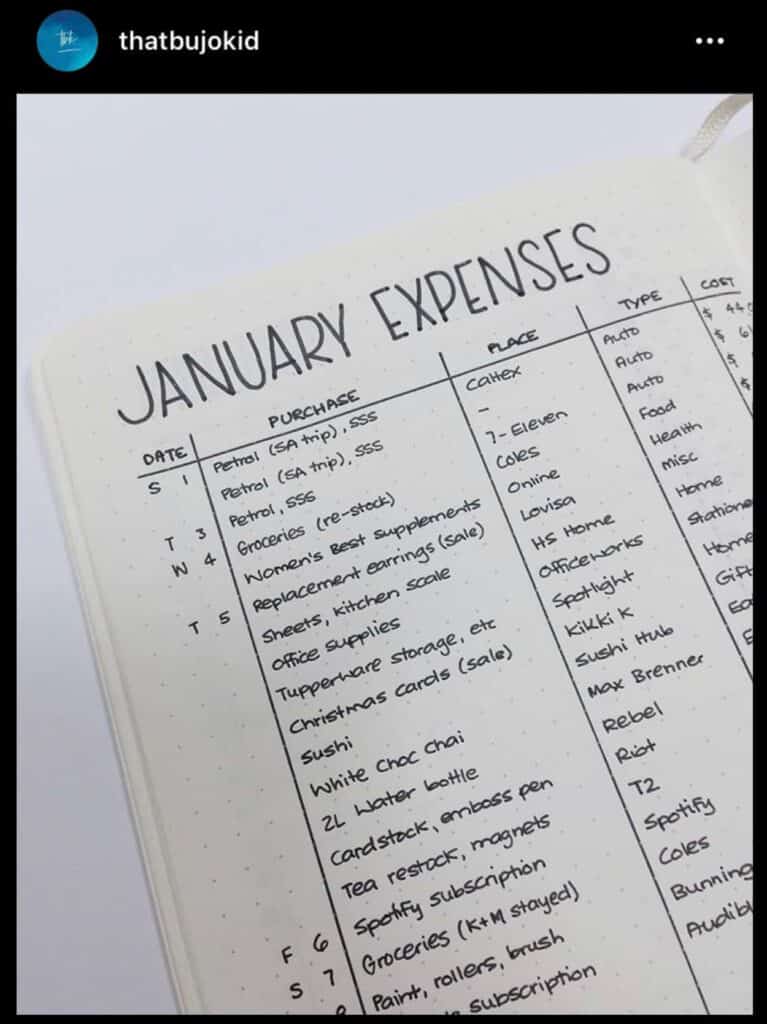 thatbujokid
JANUARY EXPENSES
DATE PURCHASE PLACE TYPE COST
S 1 Petrol (SA trip), SSS Caltex Auto $ 44
Petrol (SA trip), SSS - Auto $ 6
T 3 Petrol, SSS 7-Eleven Auto $
W 4 Groceries (re-stock) Coles Food $
Women's Best supplements Online Health
T 5 Replacement earrings (sale) Lovisa misc
Sheets, kitchen scale HS Home Home
Office supplies Officeworks Statione
Tupperware storage, etc Spotlight Home
Christmas cards (sale) Kikki K Gift
Sushi Sushi Hub Ea
White choc chai Max Brenner
2L water bottle Rebel
Cardstock, emboss pen Riot
Tea restock, magnets T2
F 6 Spotify subscription Spotify
S 7 Groceries (K+M stayed) Coles
Paint, rollers, brush Bunning
subscription Audibl